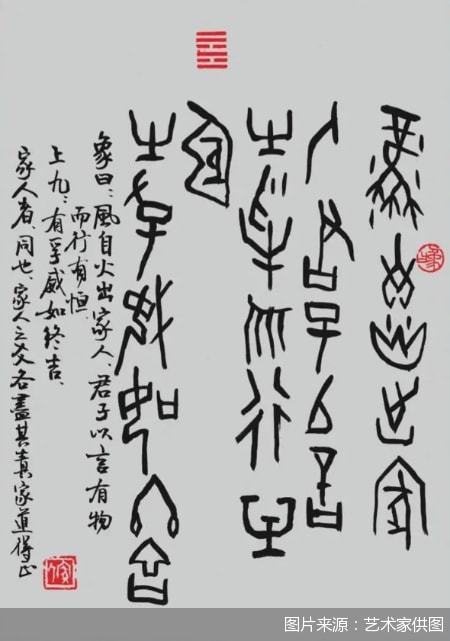 風自火出家
人君子以言
有物而行有
恒
有孚威如終吉
象曰：風自火出家人、君子以言有物
而行有恒，
上九：有孚威如終吉、
家人者、同也、家人之爻各盡其責家道得正
图片来源：艺术家供图